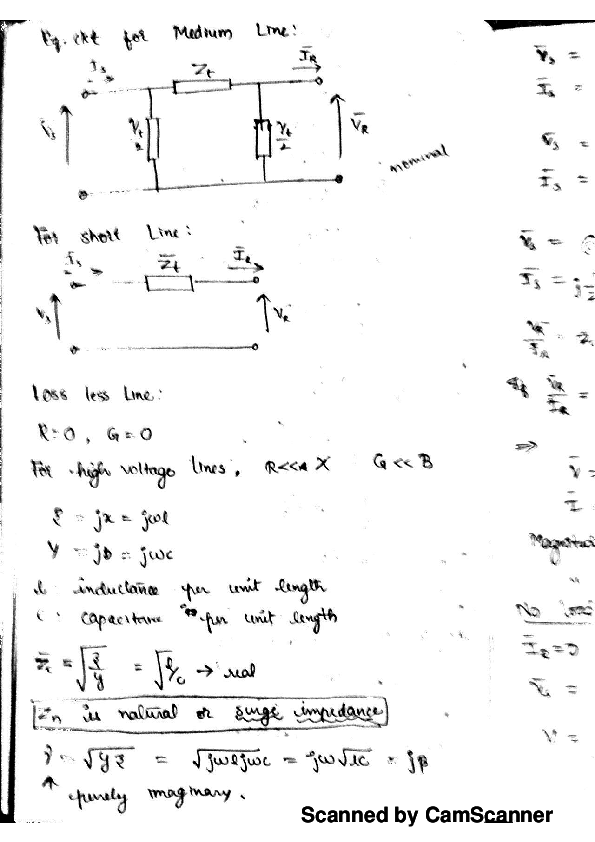 Eq. ckt for Medium Line:
I̅s Zt I̅R
V̅s Yt/2 Yt/2 V̅R
nominal
For short Line:
I̅s Z̅t I̅R
Vs V̅R
Loss less Line:
R=0, G=0
For high voltage lines, R<< X G << B
z = jx = jωl
y = jb = jωc
l: inductance per unit length
c: capacitance per unit length
Z̅c = √(z/y) = √(l/c) → real
Zn is natural or surge impedance
γ = √(yz) = √(jωl jωc) = jω√(lc) = jβ
↑ purely imaginary.
V̅s =
I̅s =
V̅s =
I̅s =
V̅s =
I̅s = j
V̅R/I̅R = Z
If V̅R/I̅R =
⇒
V̅ =
I̅
No load
I̅R=0
V =
Scanned by CamScanner